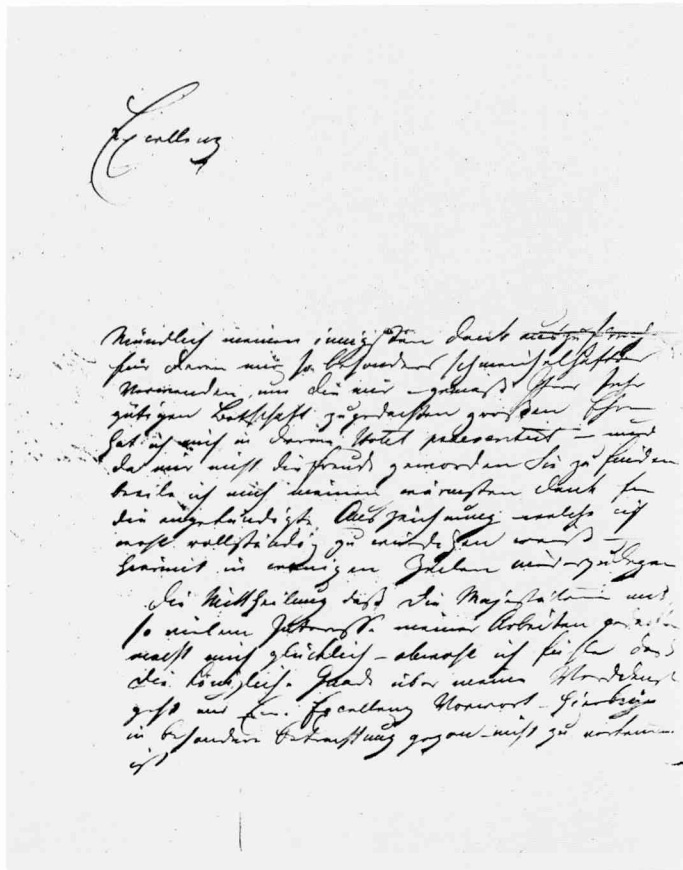 Excellenz
Mündlich meinen innigsten Dank auszu
für deren mir so besonders schmeichelhaftes
Verwenden, um die mir – gemäß Ihrer sehr
gütigen Botschaft zugedachten großen Ehren
hat ich mich in deren Hotel praesentirt – und
da mir nicht die Freude geworden Sie zu finden
beeile ich mich meinen wärmsten Dank für
die angekündigte Auszeichnung welche ich
recht vollständig zu würdigen weiß –
hiermit in wenigen Zeilen niederzulegen
Die Mittheilung daß die Majestäten mit
so vielem Interesse meiner Arbeiten
macht mich glücklich – obwohl ich fühle daß
die königliche Gnade über meinen Verdienst
geht und Ew. Excellenz Vorwort – hierbey
in besondere Betrachtung gezogen nicht zu
ist